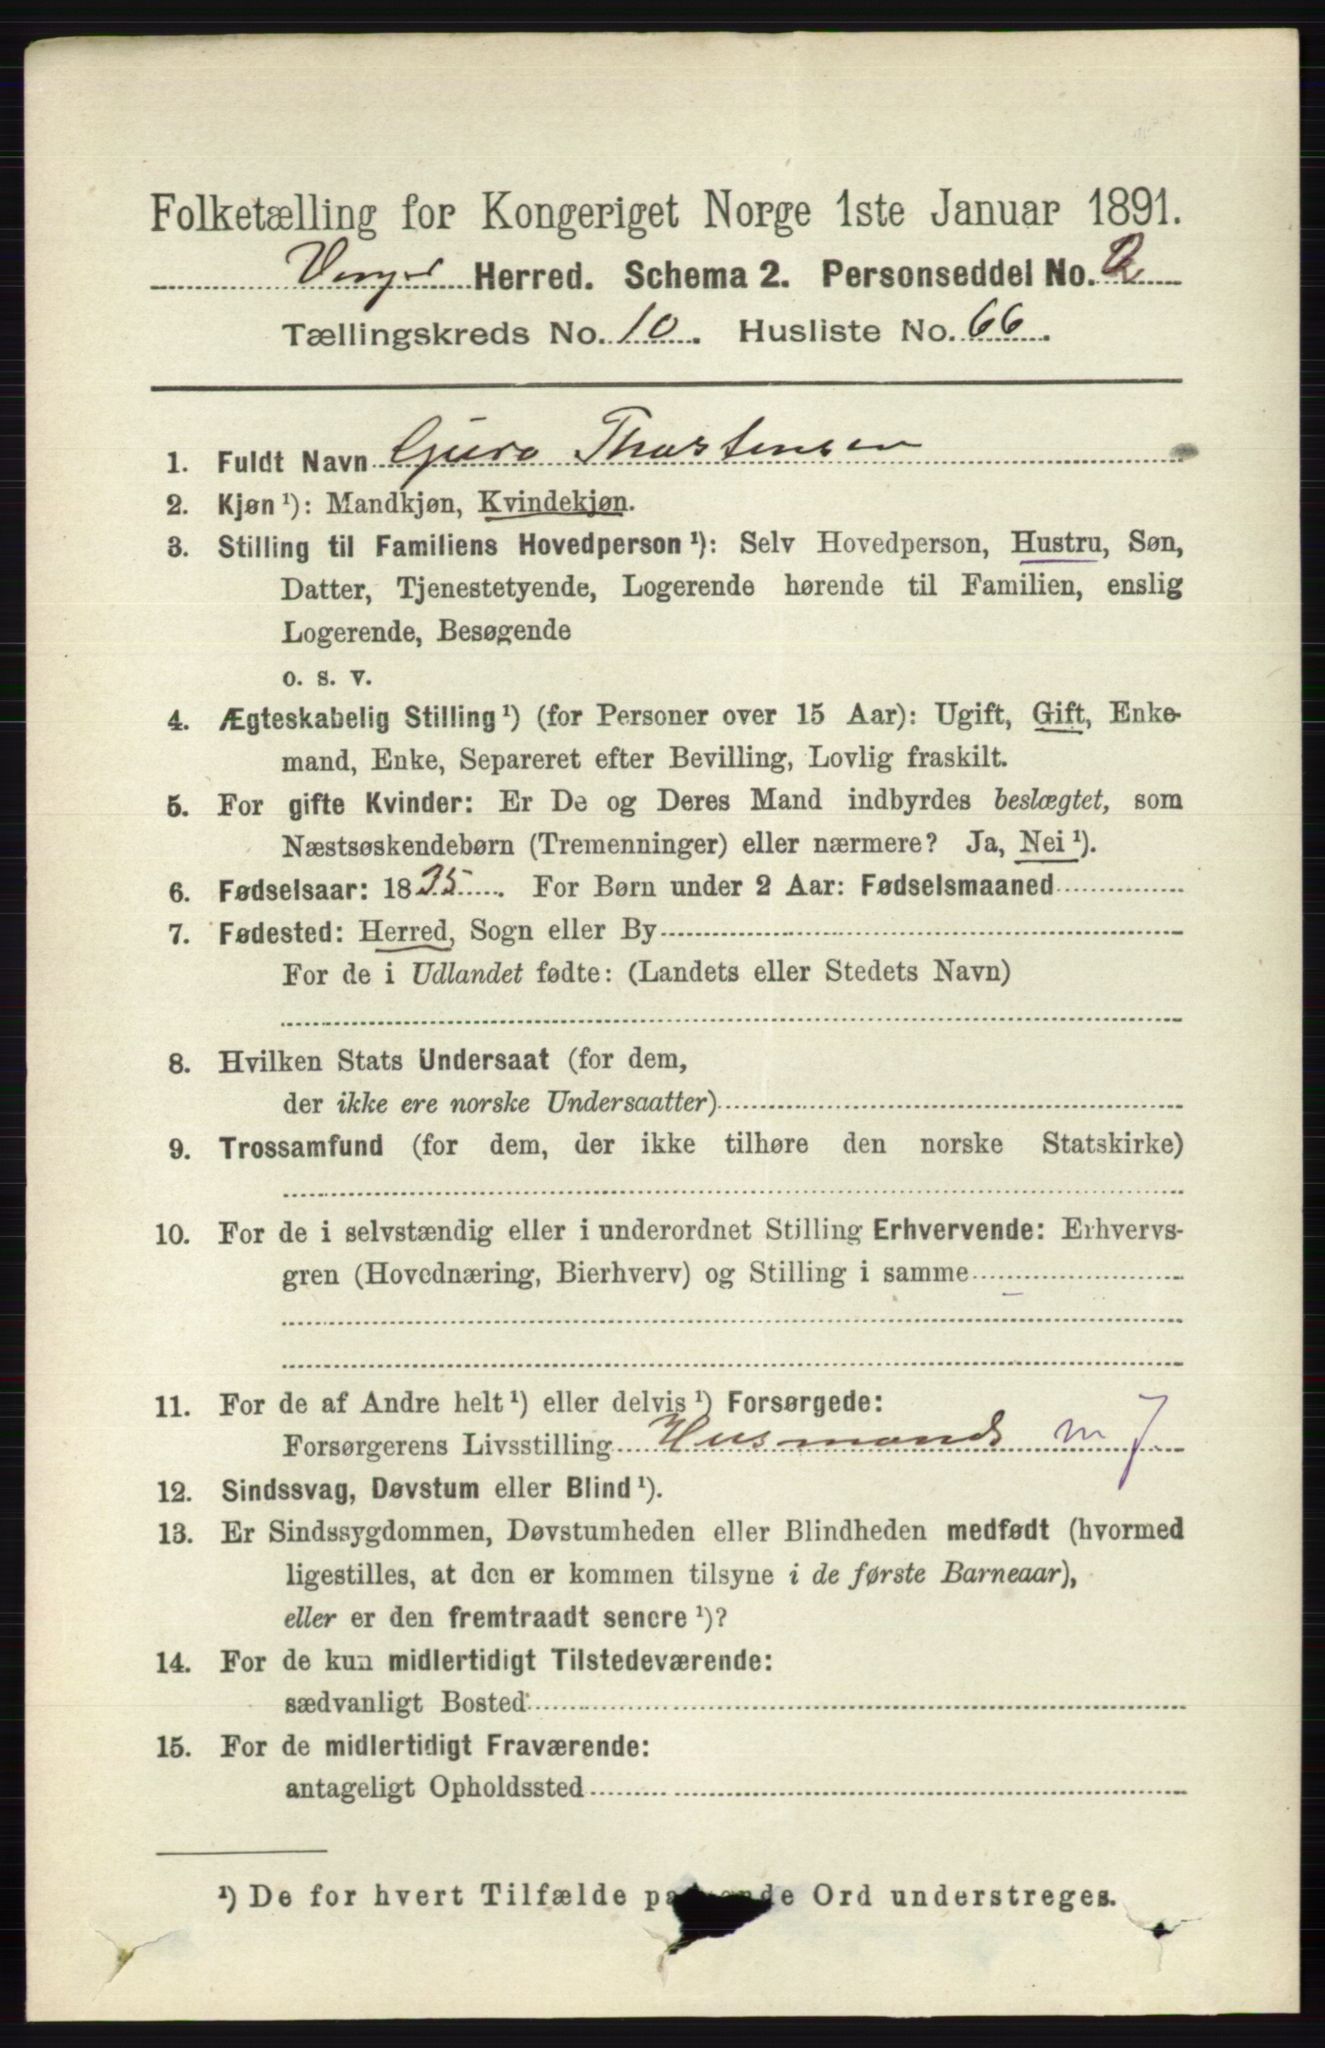 Folketælling for Kongeriget Norge 1ste Januar 1891.
Herred. Schema 2. Personseddel No. 2
Tællingskreds No. 10. Husliste No. 66.
1. Fuldt Navn Guro Thostensen
2. Kjøn ¹): Mandkjøn, Kvindekjøn.
3. Stilling til Familiens Hovedperson ¹): Selv Hovedperson, Hustru, Søn,
Datter, Tjenestetyende, Logerende hørende til Familien, enslig
Logerende, Besøgende
o. s. v.
4. Ægteskabelig Stilling ¹) (for Personer over 15 Aar): Ugift, Gift, Enke-
mand, Enke, Separeret efter Bevilling, Lovlig fraskilt.
5. For gifte Kvinder: Er De og Deres Mand indbyrdes beslægtet, som
Næstsøskendebørn (Tremenninger) eller nærmere? Ja, Nei ¹).
6. Fødselsaar: 1835. For Børn under 2 Aar: Fødselsmaaned
7. Fødested: Herred, Sogn eller By
For de i Udlandet fødte: (Landets eller Stedets Navn)
8. Hvilken Stats Undersaat (for dem,
der ikke ere norske Undersaatter)
9. Trossamfund (for dem, der ikke tilhøre den norske Statskirke)
10. For de i selvstændig eller i underordnet Stilling Erhvervende: Erhvervs-
gren (Hovednæring, Bierhverv) og Stilling i samme
11. For de af Andre helt ¹) eller delvis ¹) Forsørgede:
Forsørgerens Livsstilling Husmands m J
12. Sindssvag, Døvstum eller Blind ¹).
13. Er Sindssygdommen, Døvstumheden eller Blindheden medfødt (hvormed
ligestilles, at den er kommen tilsyne i de første Barneaar),
eller er den fremtraadt senere ¹)?
14. For de kun midlertidigt Tilstedeværende:
sædvanligt Bosted
15. For de midlertidigt Fraværende:
antageligt Opholdssted
¹) De for hvert Tilfælde passende Ord understreges.